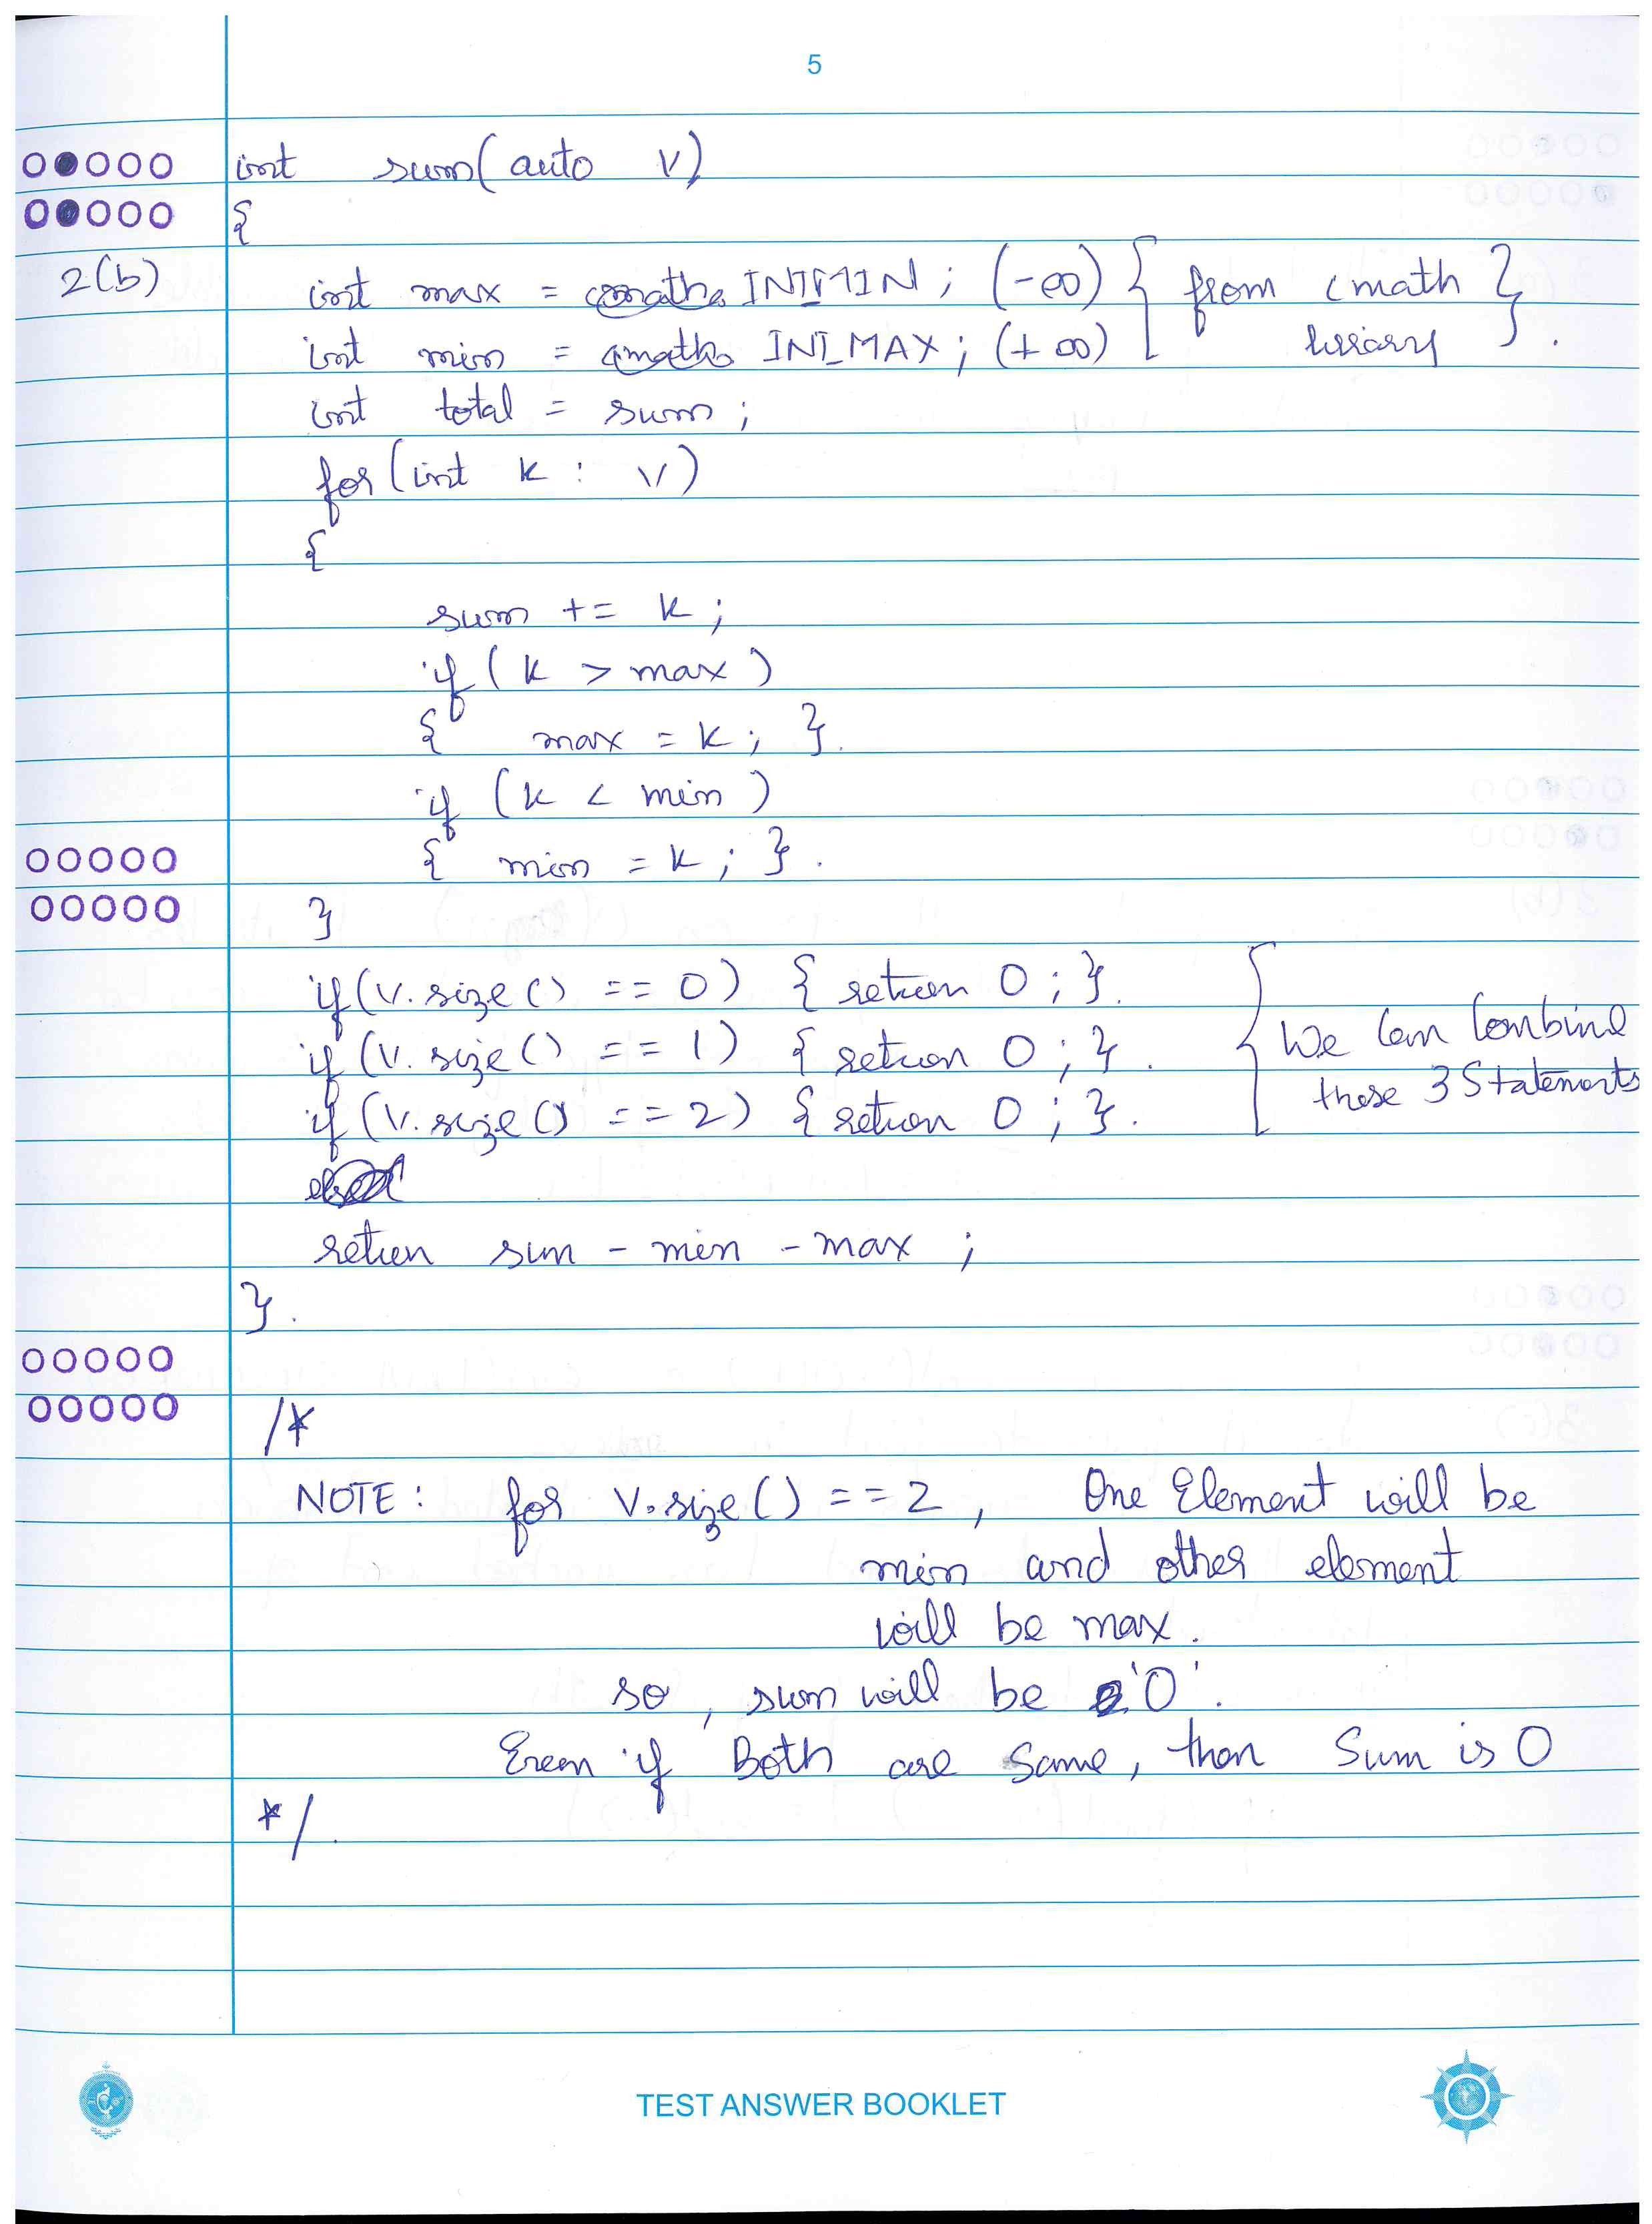 5
int sum(auto v)
{
2(b)
int max = INT_MIN; (-∞) { from cmath }
int min = INT_MAX; (+∞) library .
int total = sum;
for(int k : v)
{
sum += k;
if (k > max)
{ max = k; }.
if (k < min)
{ min = k; }.
}
if(v.size() == 0) { return 0; }.
if(v.size() == 1) { return 0; }. { We Can Combine
if(v.size() == 2) { return 0; }. these 3 Statements
return sum - min - max ;
}.
/*
NOTE: for v.size() == 2, One Element will be
min and other element
will be max.
so, sum will be '0'.
Even if Both are Same, then Sum is 0
*/.
TEST ANSWER BOOKLET